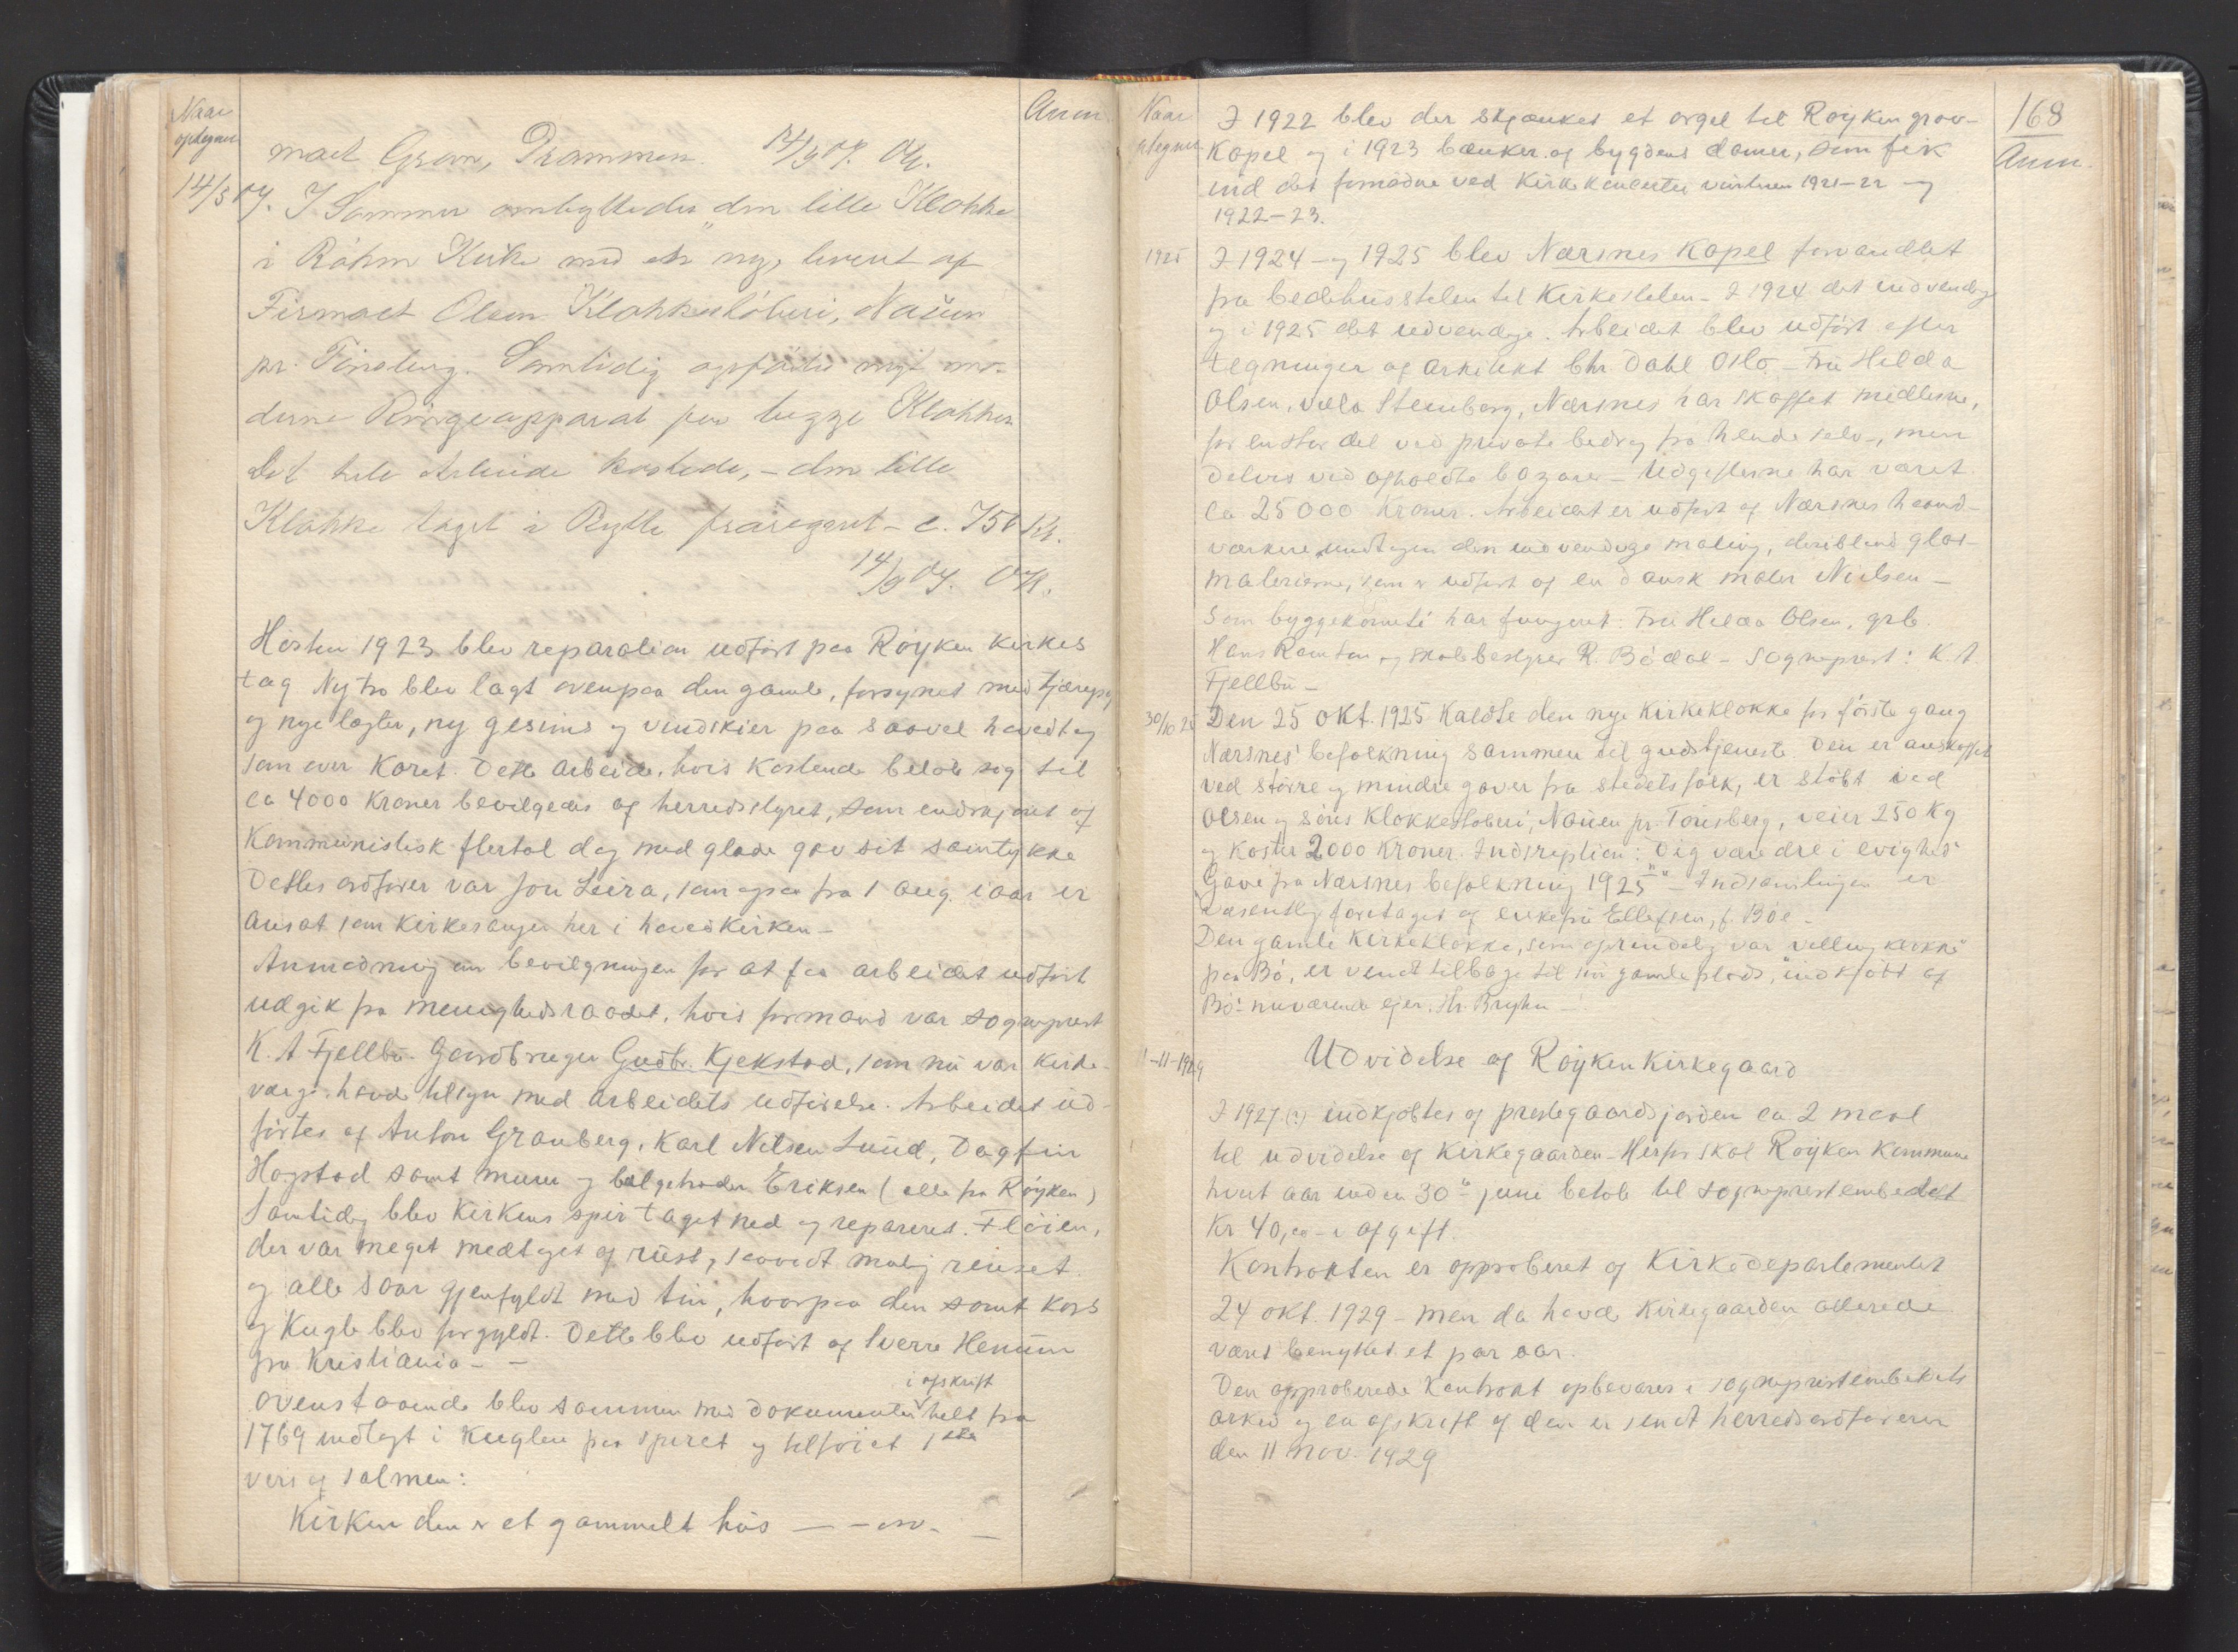 Naar
optegnet
Anm.
maet Gran, Drammen. 14/9 07. OK.
14/9 07. I Sommer ombyttedes den lille Klokke
i Röken Kirke med en ny, leveret af
Firmaet Olsen Klokkestöberi, Nauen
pr. Tönsberg. Samtidig opsattes nyt mo-
derne Ringeapparat for begge Klokker
Det hele Arbeide kostede, – den lille
Klokke taget i Bytte fraregnet – c. 750 Kr.
14/9 07. OK.
Høsten 1923 blev reparation udført paa Røyken kirkes
tag Ny tro blev lagt ovenpaa den gamle, forsynet med tjærepap
og nye lægter, ny gesims og vindskier paa saavel hovedtag
som over koret. Dette arbeide, hvis kostende beløb sig til
ca 4000 kroner bevilgedes af herredsstyret, som endskjønt af
kommunistisk flertal dog med glæde gav sit samtykke
Dettes ordfører var Jon Leira, som ogsaa fra 1 aug. i aar er
ansat som kirkesanger her i hovedkirken –
Anmodning om bevilgningen for at faa arbeidet udført
udgik fra menighedsraadet, hvis formand var sogneprest
K. A Fjellbu. Gaardbruger Gudbr. Kjekstad, som nu var kirke-
verge havde tilsyn med arbeidets udførelse. Arbeidet ud-
førtes af Anton Granberg, Karl Nilsen Lund, Dagfin
Hogstad samt murer og bælgetræder Eriksen (alle fra Røyken)
Samtidig blev kirkens spir taget ned og repareret. Fløien,
der var meget medtaget af rust, saavidt mulig renset
og alle saar gjenfyldt med tin, hvorpaa den samt kors
og kugle blev forgyldt. Dette blev udført af Sverre Henum
fra Kristiania – –
i afskrift
Ovenstaaende blev sammen med dokumenter helt fra
1769 nedlagt i kuglen paa spiret og tilføiet 1ste
vers af salmen:
Kirken den er et gammelt hus – – osv. –
Naar
optegnet
168
Anm.
I 1922 blev der skjænket et orgel til Røyken grav-
kapel og i 1923 bænker af bygdens damer, som fik
ind det fornødne ved kirkekoncerter vinteren 1921–22 og
1922–23.
1925 I 1924 – og 1925 blev Nærsnes Kapel forvandlet
fra bedehusstilen til kirkestilen – I 1924 det indvendige
og i 1925 det udvendige. Arbeidet blev udført efter
tegninger af arkitekt Chr. Dahl Oslo – Fru Helda
Olsen, villa Stenberg, Nærsnes har skaffet midlerne,
for en stor del ved private bidrag fra hende selv –, men
delvis ved afholdte bazarer – Udgifterne har været
ca 25000 kroner. Arbeidet er udført af Nærsnes haand-
verkere undtagen den indvendige maling, deriblandt glas-
malerierne, som er udført af en dansk maler Nielsen –
Som byggekomite har fungeret: Fru Helda Olsen, grb.
Hans Ramton og skolebestyrer R. Bödal – Sogneprest: K. A.
Fjellbu –
30/10 25 Den 25 okt. 1925 kaldte den nye kirkeklokke for første gang
Nærsnes' befolkning sammen til gudstjeneste. Den er anskaffet
ved større og mindre gaver fra stedets folk, er støbt ved
Olsen og søns klokkestøberi, Nauen pr. Tønsberg, veier 250 kg
og koster 2000 kroner. Indskription: Dig være ære i evighed
"Gave fra Nærsnes befolkning 1925" – Indsamlingen er
væsentlig foretaget af enkefru Ellefsen, f. Böe –
Den gamle kirkeklokke, som oprindelig var vellingklokke
paa Bö, er vendt tilbage til sin gamle plads, indkjøbt af
Bö's nuværende ejer, Hr. Bryhn –
11-11-1929 Udvidelse af Røyken Kirkegaard
I 1927 (?) indkjøbtes af prestegaardsjorden ca 2 maal
til udvidelse af kirkegaarden – Herfor skal Røyken kommune
hvert aar inden 30te juni betale til sogneprestembedet
Kr 40,00 – i afgift.
Kontrakten er approberet af Kirkedepartementet
24 okt. 1929 – men da havde kirkegaarden allerede
været benyttet et par aar.
Den approberede kontrakt opbevares i sogneprestembedets
arkiv og en afskrift af den er sendt herredsordføreren
den 11 nov. 1929